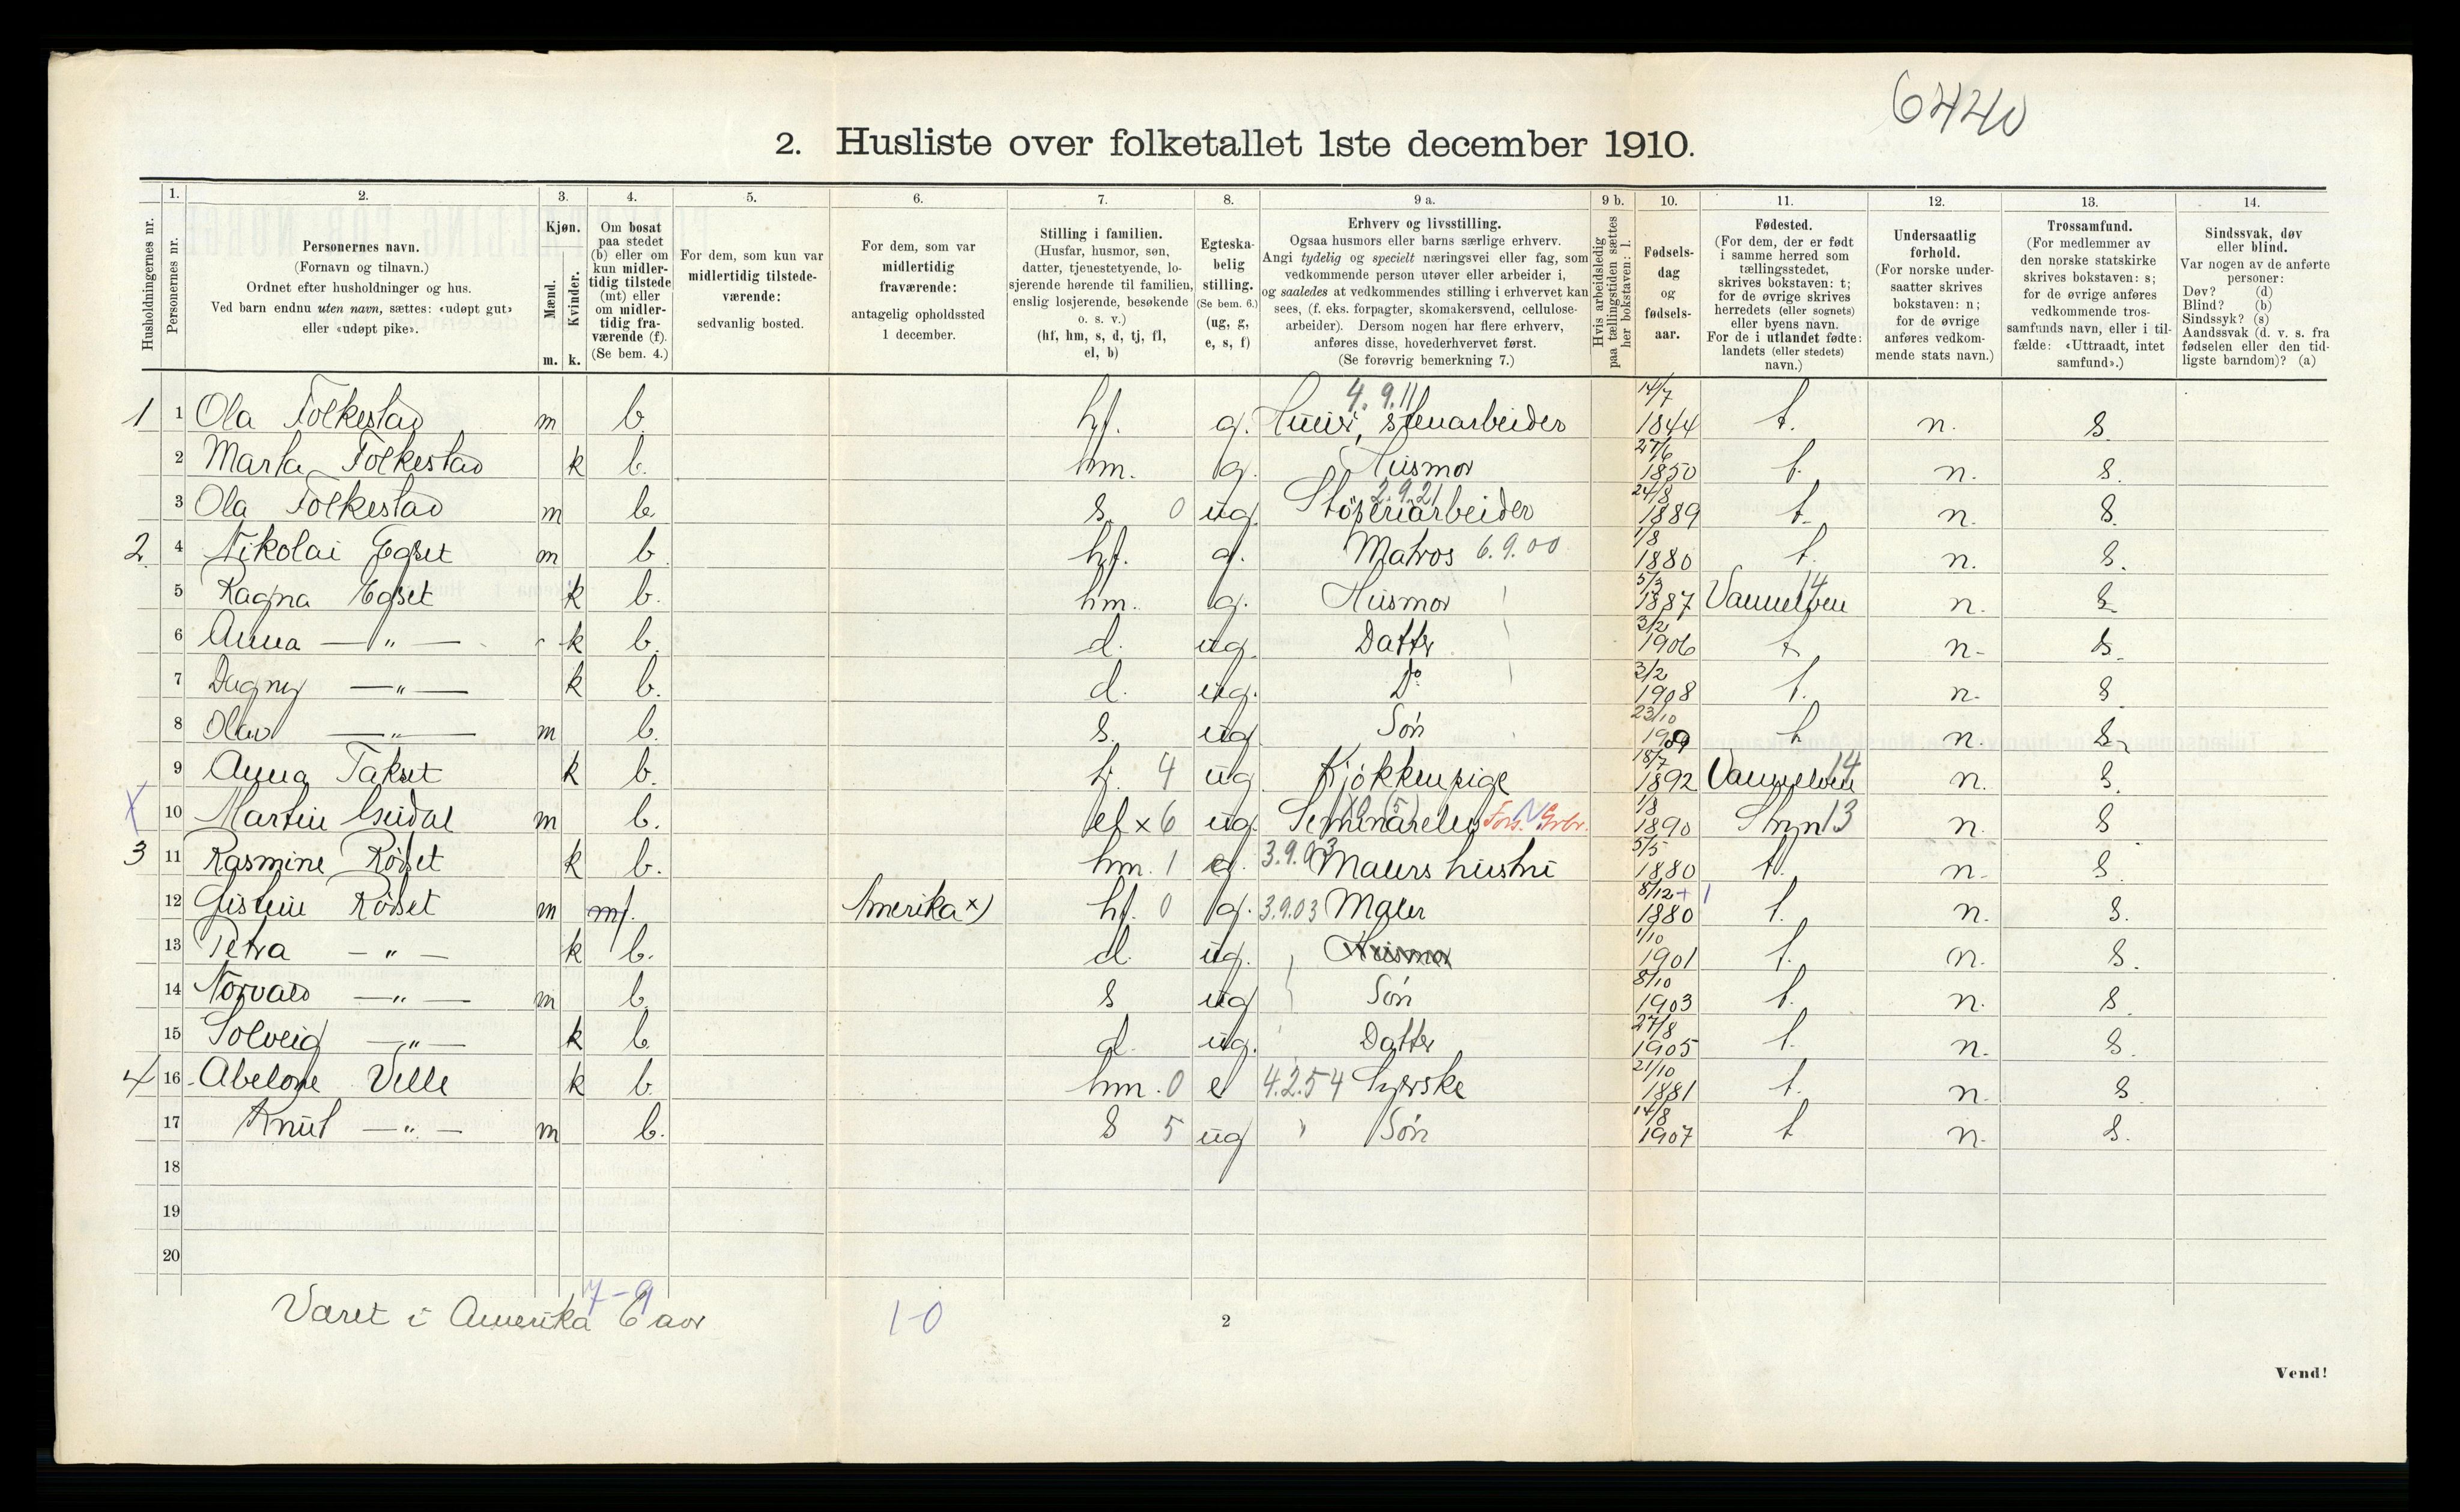 6440
2. Husliste over folketallet 1ste december 1910.
Husholdningernes nr.
1. Personernes nr.
2. Personernes navn.
(Fornavn og tilnavn.)
Ordnet efter husholdninger og hus.
Ved barn endnu uten navn, sættes: «udøpt gut»
eller «udøpt pike».
3. Kjøn.
Mænd. m.
Kvinder. k.
4. Om bosat
paa stedet
(b) eller om
kun midler-
tidig tilstede
(mt) eller
om midler-
tidig fra-
værende (f).
(Se bem. 4.)
5. For dem, som kun var
midlertidig tilstede-
værende:
sedvanlig bosted.
6. For dem, som var
midlertidig
fraværende:
antagelig opholdssted
1 december.
7. Stilling i familien.
(Husfar, husmor, søn,
datter, tjenestetyende, lo-
sjerende hørende til familien,
enslig losjerende, besøkende
o. s. v.)
(hf, hm, s, d, tj, fl,
el, b)
8. Egteska-
belig
stilling.
(Se bem. 6.)
(ug, g,
e, s, f)
9 a. Erhverv og livsstilling.
Ogsaa husmors eller barns særlige erhverv.
Angi tydelig og specielt næringsvei eller fag, som
vedkommende person utøver eller arbeider i,
og saaledes at vedkommendes stilling i erhvervet kan
sees, (f. eks. forpagter, skomakersvend, cellulose-
arbeider). Dersom nogen har flere erhverv,
anføres disse, hovederhvervet først.
(Se forøvrig bemerkning 7.)
9 b. Hvis arbeidsledig
paa tællingstiden sættes
her bokstaven: l.
10. Fødsels-
dag
og
fødsels-
aar.
11. Fødested.
(For dem, der er født
i samme herred som
tællingsstedet,
skrives bokstaven: t;
for de øvrige skrives
herredets (eller sognets)
eller byens navn.
For de i utlandet fødte:
landets (eller stedets)
navn.)
12. Undersaatlig
forhold.
(For norske under-
saatter skrives
bokstaven: n;
for de øvrige
anføres vedkom-
mende stats navn.)
13. Trossamfund.
(For medlemmer av
den norske statskirke
skrives bokstaven: s;
for de øvrige anføres
vedkommende tros-
samfunds navn, eller i til-
fælde: «Uttraadt, intet
samfund».)
14. Sindssvak, døv
eller blind.
Var nogen av de anførte
personer:
Døv? (d)
Blind? (b)
Sindssyk? (s)
Aandssvak (d. v. s. fra
fødselen eller den tid-
ligste barndom)? (a)
1 1 Ola Folkestad m b. hf. g. stenarbeider 4.9.11 14/7 1844 t. n. s.
2 Marta Folkestad k b. hm. g. Husmor 27/6 1850 t. n. s.
3 Ola Folkestad m b. s. 0 ug. Støperiarbeider 2.9.21 24/8 1889 t. n. s.
2 4 Nikolai Egset m b. hf. g. Matros 6.9.00 1/8 1880 t. n. s.
5 Ragna Egset k b. hm. g. Husmor 5/3 1887 Vannelven 14 n. s.
6 Anna — „ — k b. d. ug. Datter 3/2 1906 t. n. s.
7 Dagny — „ — k b. d. ug. Do 3/2 1908 t. n. s.
8 Olav — „ — m b. s. ug. Søn 23/10 1909 t. n. s.
9 Anna Takset k b. tj. 4 ug. Kjøkkenpige 18/7 1892 Vannelven 14 n. s.
X 10 Martin m b. el x 6 ug. Seminarelev Fors. 1/8 1890 13 n. s.
3 11 Rasmine Rødset k b. hm. 1 g. 3.9.03 Malers hustru 5/5 1880 t. n. s.
12 Rødset m mf. Amerika x) hf. 0 g. 3.9.03 Maler 8/12 1880 t. n. s.
13 Petra — „ — k b. d. ug. Husmor 1/10 1901 t. n. s.
14 Norvald — „ — m b. s ug Søn 8/10 1903 t. n. s.
15 Solveig — „ — k b. d. ug. Datter 27/8 1905 t. n. s.
4 16 Abelone Velle k b. hm. 0 e 4.2.54 Syerske 21/10 1881 t. n. s.
17 Knut — „ — m b. s 5 ug Søn 14/8 1907 t n. s.
18
19
20
7-9
Været i Amerika 6 aar
1-0
2
Vend!